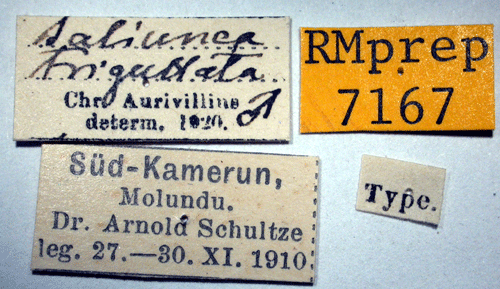 Saliunca
triguttata
Chr. Aurivillius ♂
determ. 1920.
RMprep
7167
Süd-Kamerun,
Molundu.
Dr. Arnold Schultze
leg. 27.—30. XI. 1910
Type.